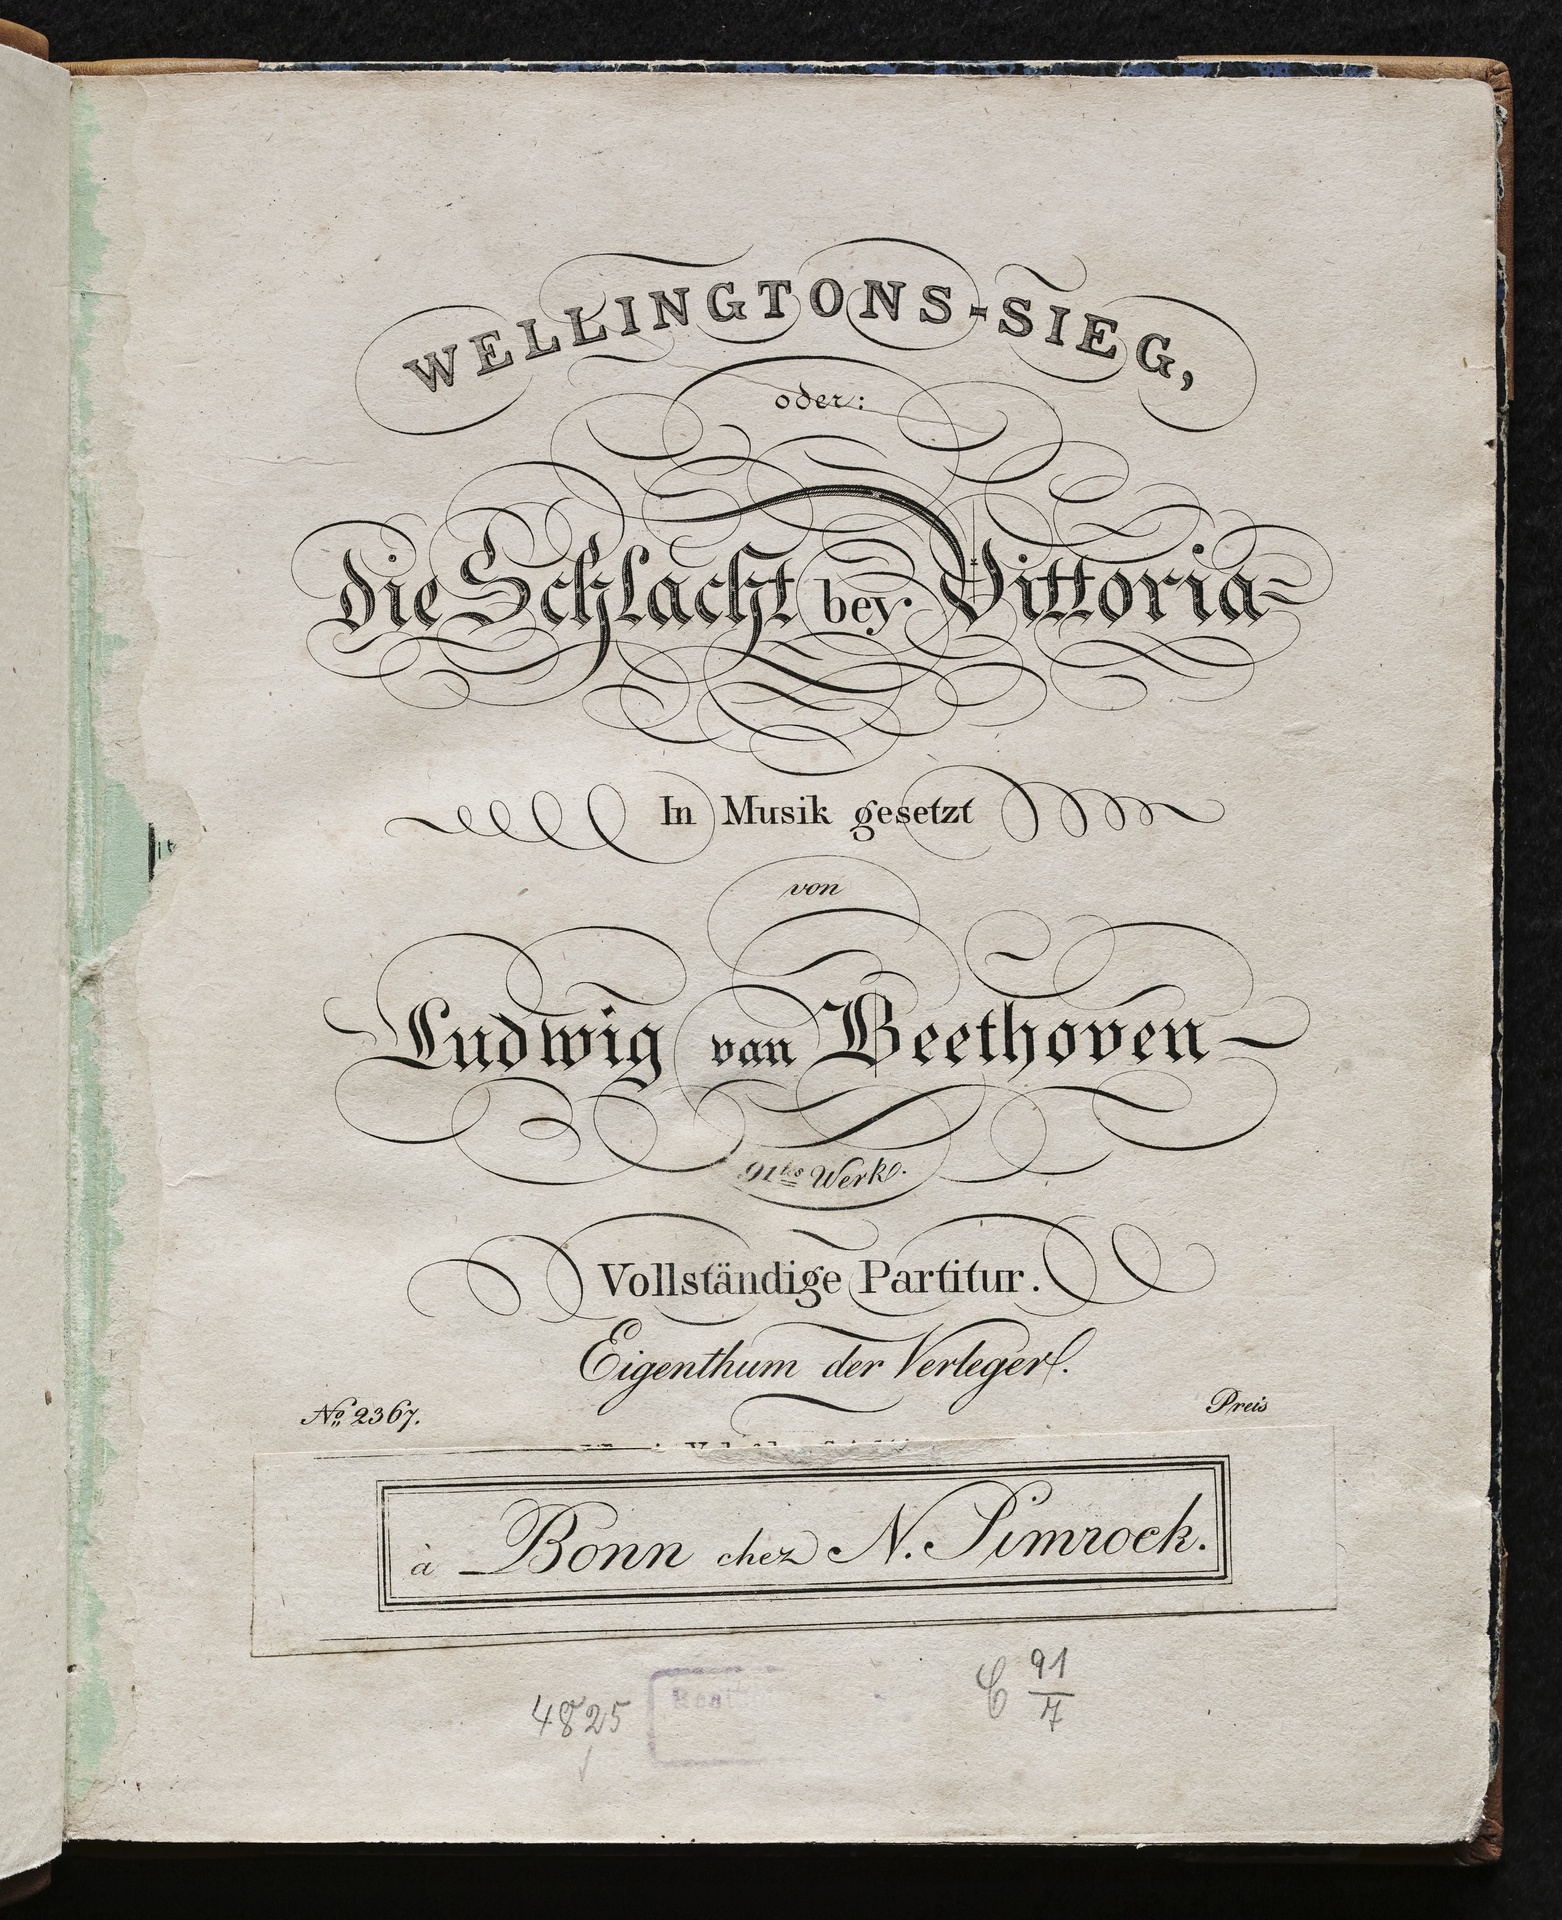 WELLINGTONS-SIEG,
oder:
die Schlacht bey Vittoria
In Musik gesetzt
von
Ludwig van Beethoven
91tes Werk.
Vollständige Partitur.
Eigenthum der Verleger.
No. 2367. Preis
à Bonn chez N. Simrock.
4825
C 91/7